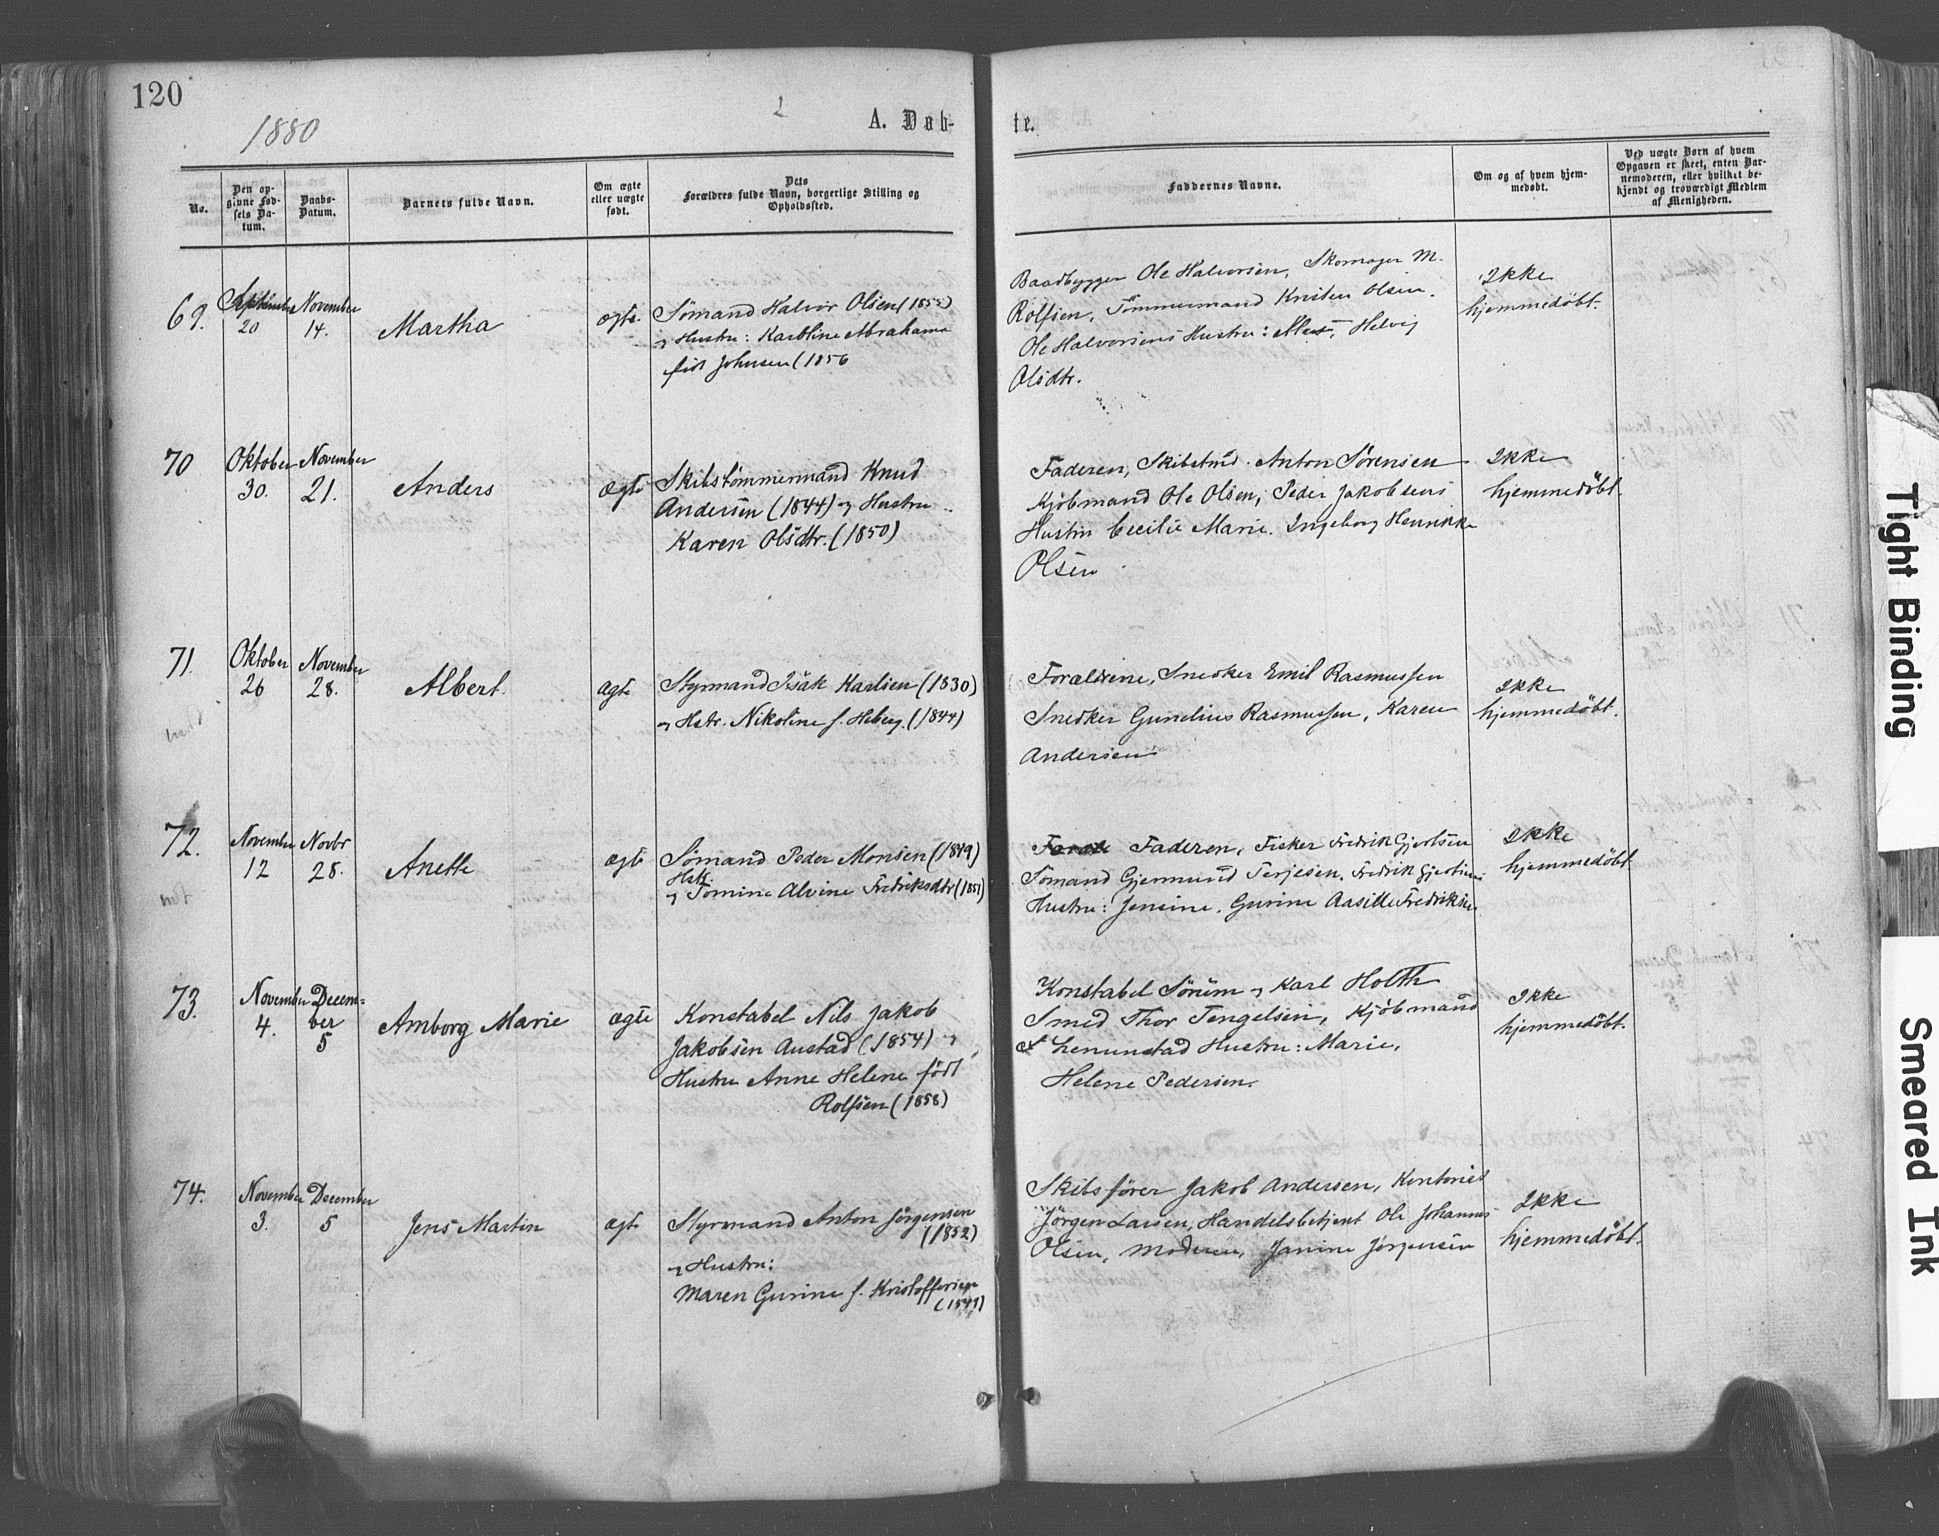 120
1880
2
A. Døb-
te.
No.
Den op-
givne Fød-
sels Da-
tum.
Daabs-
Datum.
Barnets fulde Navn.
Om ægte
eller uægte
født.
Dets
Forældres fulde Navn, borgerlige Stilling og
Opholdssted.
Faddernes Navne.
Om og af hvem hjem-
medøbt.
Ved uægte Børn af hvem
Opgaven er skeet, enten Bar-
nemoderen, eller hvilket be-
kjendt og troværdigt Medlem
af Menigheden.
69.
September
20
November
14.
Martha
ægte
Sømand Halvor Olsen (1855)
og Hustru: Karoline Abrahama
født Johnsen (1856
Baadbygger Ole Halvorsen, Skomager M.
Rolfsen, Tømmermand Kristen Olsen.
Ole Halvorsens Hustru: Helvig
Olsdtr.
Ikke
hjemmedøbt.
70
Oktober
30.
November
21.
Anders
Ægte
Skibstømmermand Knud
Andersen (1844) og Hustru
Karen Olsdtr. (1850)
Faderen, Skibstmd. Anton Sørensen
Kjøbmand Ole Olsen, Peder Jakobsens
Hustru Cecilie Marie. Ingeborg Henrikke
Olsen
Ikke
hjemmedøbt.
71.
Oktober
26
November
28.
Albert
Ægte
Styrmand Isak Karlsen (1830)
og Hstr. Nikoline f. Heberg. (1844)
Forældrene, Snedker Emil Rasmussen
Snedker Gunelius Rasmussen, Karen
Andersen
Ikke
hjemmedøbt.
72.
November
12
Novbr
28.
Anette
ægte
Sømand Peder Monsen (1849)
Hst.
og Tomine Alvine Fredriksdtr (1851)
Faderen, Fisker Fredrik Gjertsen
Sømand Gjermund Terjesen. Fredrik Gjertsens
Hustru: Jensine. Gurine Aasille Fredriksen
Ikke
hjemmedøbt.
73.
November
4.
Decem-
ber
5
Amborg Marie
Ægte
Konstabel Nils Jakob
Jakobsen Austad (1854) og
Hustru Anne Helene født
Rolfsen (1858)
Konstabel Sørum og Karl Holth
Smed Thor Tengelsen, Kjøbmand
Hustru: Marie,
Helene Pedersen.
Ikke
hjemmedøbt.
74.
November
3.
December
5
Jens Martin
ægte
Styrmand Anton Jørgensen
(1852)
og Hustru:
Maren Gurine f. Kristoffersen
Skibsfører Jakob Andersen, Kontorist
Jørgen Larsen, Handelsbetjent Ole Johannes
Olsen, Moderen, Janine Jørgensen
Ikke
hjemmedøbt.
Tight Binding
Smeared Ink